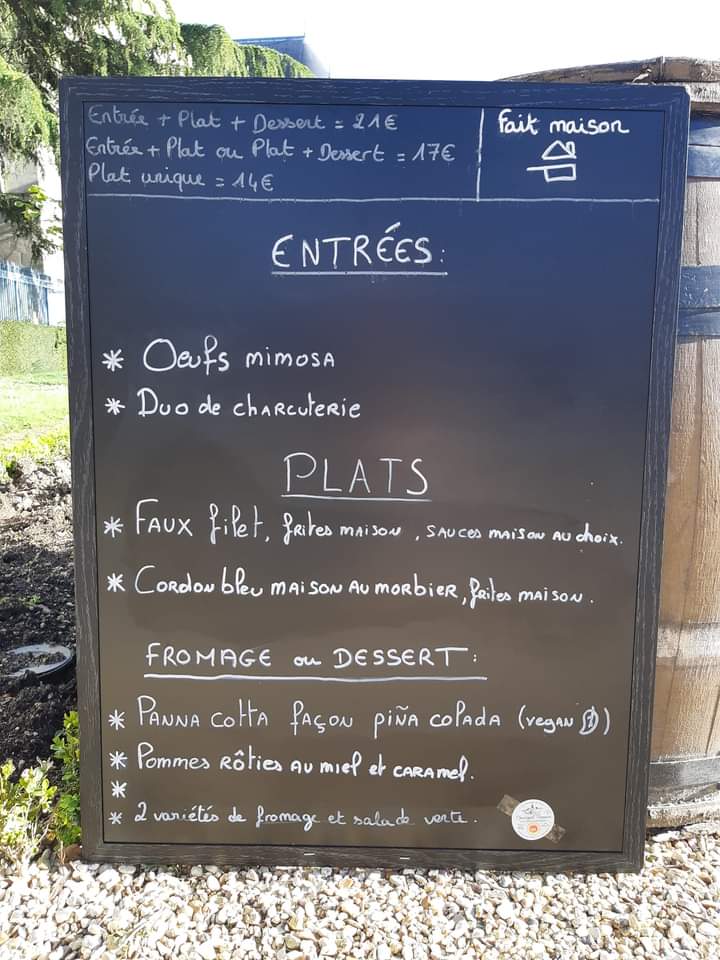 Entrée + Plat + Dessert = 21€
Entrée + Plat ou Plat + Dessert = 17€
Plat unique = 14€
Fait maison
ENTRÉES:
* Oeufs mimosa
* Duo de charcuterie
PLATS
* Faux filet, frites maison, sauces maison au choix.
* Cordon bleu maison au morbier, frites maison.
FROMAGE ou DESSERT:
* Panna cotta façon piña colada (vegan)
* Pommes rôties au miel et caramel.
*
* 2 variétés de fromage et salade verte.